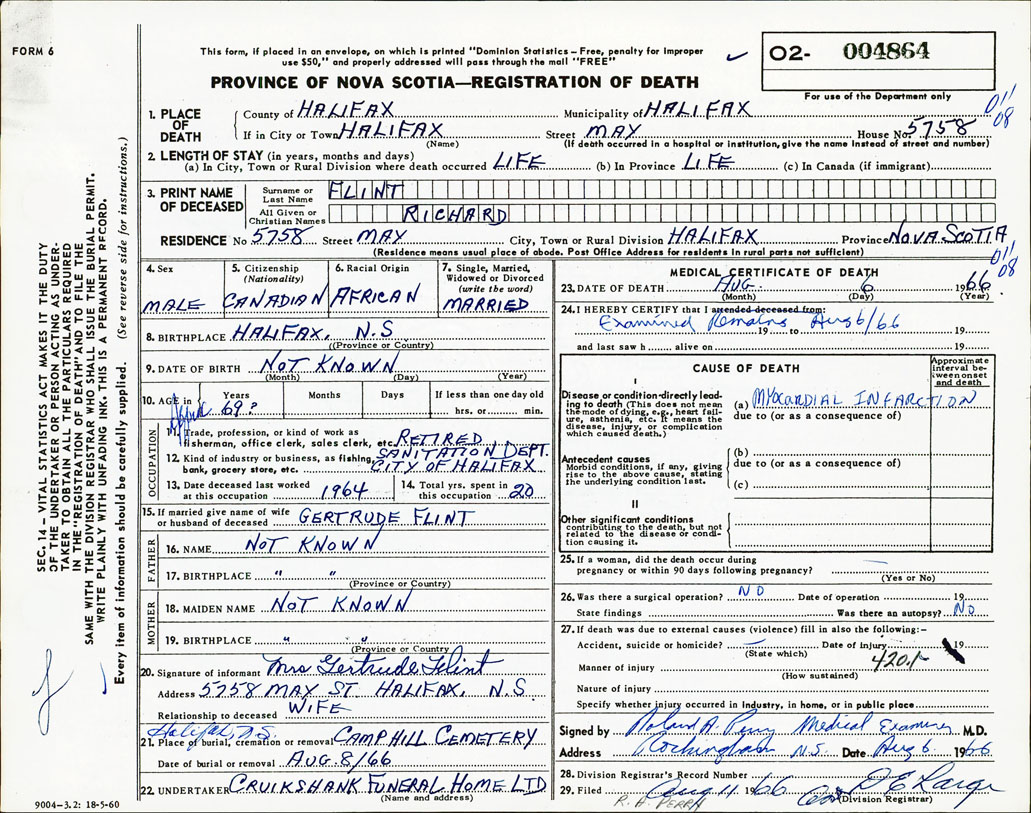 FORM 6
This form, if placed in an envelope, on which is printed "Dominion Statistics – Free, penalty for improper
use $50," and properly addressed will pass through the mail "FREE"
PROVINCE OF NOVA SCOTIA—REGISTRATION OF DEATH
02- 004864
For use of the Department only
011
08
1. PLACE OF DEATH
County of HALIFAX Municipality of HALIFAX
If in City or Town HALIFAX Street MAY House No. 5758
(Name) (If death occurred in a hospital or institution, give the name instead of street and number)
2. LENGTH OF STAY (in years, months and days)
(a) In City, Town or Rural Division where death occurred LIFE (b) In Province LIFE (c) In Canada (if immigrant)
3. PRINT NAME OF DECEASED
Surname or Last Name FLINT
All Given or Christian Names RICHARD
RESIDENCE No 5758 Street MAY City, Town or Rural Division HALIFAX Province NOVA SCOTIA
(Residence means usual place of abode. Post Office Address for residents in rural parts not sufficient)
011
08
4. Sex MALE
5. Citizenship (Nationality) CANADIAN
6. Racial Origin AFRICAN
7. Single, Married, Widowed or Divorced (write the word) MARRIED
8. BIRTHPLACE HALIFAX, N.S
(Province or Country)
9. DATE OF BIRTH NOT KNOWN
(Month) (Day) (Year)
10. AGE in Years Months Days If less than one day old
69? hrs. or min.
OCCUPATION
11. Trade, profession, or kind of work as
fisherman, office clerk, sales clerk, etc. RETIRED
12. Kind of industry or business, as fishing, SANITATION DEPT.
bank, grocery store, etc. CITY OF HALIFAX
13. Date deceased last worked
at this occupation 1964
14. Total yrs. spent in
this occupation 20
15. If married give name of wife
or husband of deceased GERTRUDE FLINT
FATHER
16. NAME NOT KNOWN
17. BIRTHPLACE " "
(Province or Country)
MOTHER
18. MAIDEN NAME NOT KNOWN
19. BIRTHPLACE " "
(Province or Country)
20. Signature of informant Mrs Gertrude Flint
Address 5758 MAY ST. HALIFAX, N.S
Relationship to deceased WIFE
Halifax, N.S.
21. Place of burial, cremation or removal CAMP HILL CEMETERY
Date of burial or removal AUG. 8/66
22. UNDERTAKER CRUIKSHANK FUNERAL HOME LTD
(Name and address)
MEDICAL CERTIFICATE OF DEATH
23. DATE OF DEATH AUG. 6 1966
(Month) (Day) (Year)
24. I HEREBY CERTIFY that I attended deceased from:
Examined Remains Aug 6/66
19 to 19
and last saw h alive on 19
CAUSE OF DEATH
Approximate interval between onset and death
I
Disease or condition directly leading to death (This does not mean the mode of dying, e.g., heart failure, asthenia, etc. It means the disease, injury, or complication which caused death.)
(a) MYOCARDIAL INFARCTION
due to (or as a consequence of)
Antecedent causes
Morbid conditions, if any, giving rise to the above cause, stating the underlying condition last.
(b)
due to (or as a consequence of)
(c)
II
Other significant conditions
contributing to the death, but not related to the disease or condition causing it.
25. If a woman, did the death occur during
pregnancy or within 90 days following pregnancy? —
(Yes or No)
26. Was there a surgical operation? NO Date of operation 19
State findings Was there an autopsy? NO
27. If death was due to external causes (violence) fill in also the following:–
Accident, suicide or homicide? — Date of injury 19
(State which)
420.1
Manner of injury
(How sustained)
Nature of injury
Specify whether injury occurred in industry, in home, or in public place
Signed by Roland A. Perry Medical Examiner M.D.
Address Rockingham N.S. Date Aug 6 1966
28. Division Registrar's Record Number
29. Filed Aug 11 1966
(Division Registrar)
R. A. PERRY
9004—3.2: 18-5-60
SEC. 14 – VITAL STATISTICS ACT MAKES IT THE DUTY
OF THE UNDERTAKER OR PERSON ACTING AS UNDER-
TAKER TO OBTAIN ALL THE PARTICULARS REQUIRED
IN THE "REGISTRATION OF DEATH" AND TO FILE THE
SAME WITH THE DIVISION REGISTRAR WHO SHALL ISSUE THE BURIAL PERMIT.
WRITE PLAINLY WITH UNFADING INK. THIS IS A PERMANENT RECORD.
Every item of information should be carefully supplied. (See reverse side for instructions.)